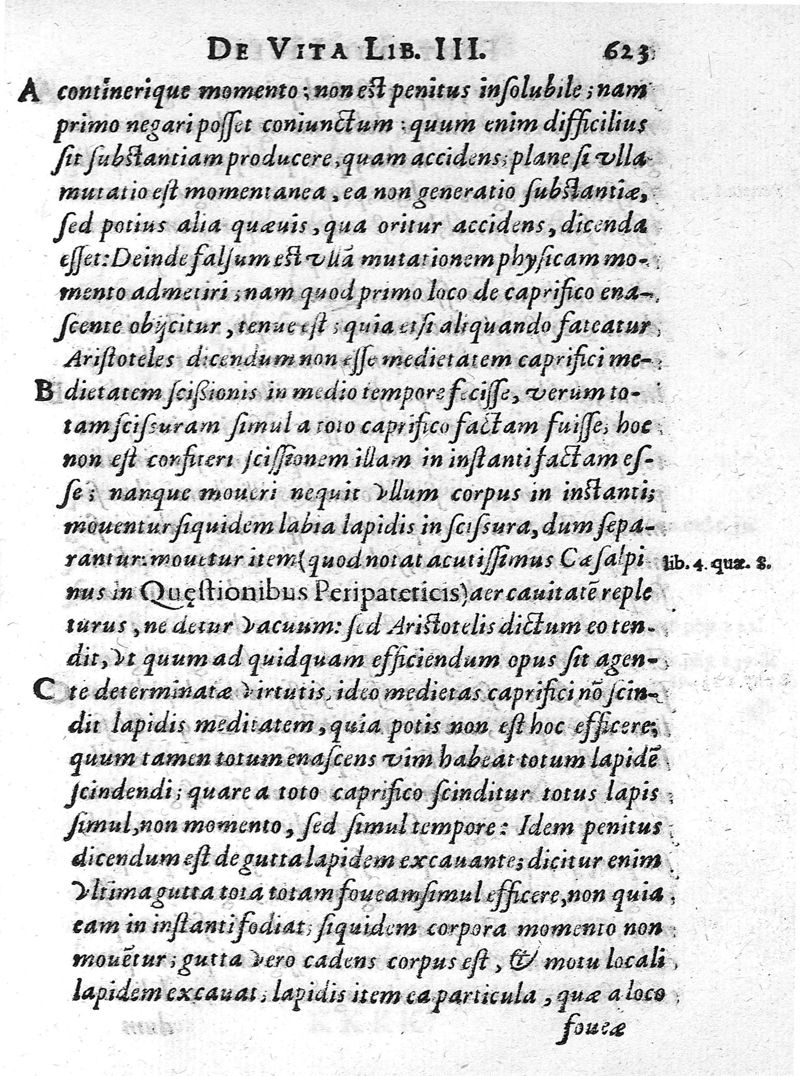 DE VITA LIB. III. 623
A continerique momento; non est penitus insolubile; nam
primo negari posset coniunctum: quum enim difficilius
sit substantiam producere, quam accidens; plane si vlla
mutatio est momentanea, ea non generatio substantiæ,
sed potius alia quæuis, qua oritur accidens, dicenda
esset: Deinde falsum est vllā mutationem physicam mo-
mento admetiri; nam quod primo loco de caprifico ena-
scente obijcitur, tenue est; quia etsi aliquando fateatur
Aristoteles dicendum non esse medietatem caprifici me-
B dietatem scissionis in medio tempore fecisse, verum to-
tam scissuram simul a toto caprifico factam fuisse; hoc
non est confiteri scissionem illam in instanti factam es-
se; nanque moueri nequit vllum corpus in instanti;
mouentur siquidem labia lapidis in scissura, dum sepa-
rantur: mouetur item (quod notat acutissimus Cæsalpi lib. 4. quæ. 8.
nus in Quęstionibus Peripateticis) aer cauitatē reple
turus, ne detur vacuum: sed Aristotelis dictum eo ten-
dit, vt quum ad quidquam efficiendum opus sit agen-
C te determinatæ virtutis, ideo medietas caprifici nō scin-
dit lapidis meditatem, quia potis non est hoc efficere;
quum tamen totum enascens vim habeat totum lapidē
scindendi; quare a toto caprifico scinditur totus lapis
simul, non momento, sed simul tempore: Idem penitus
dicendum est de gutta lapidem excauante; dicitur enim
vltima gutta tota totam foueam simul efficere, non quia
eam in instanti fodiat; siquidem corpora momento non
mouētur; gutta vero cadens corpus est, & motu locali
lapidem excauat; lapidis item ea particula, quæ a loco
foueæ